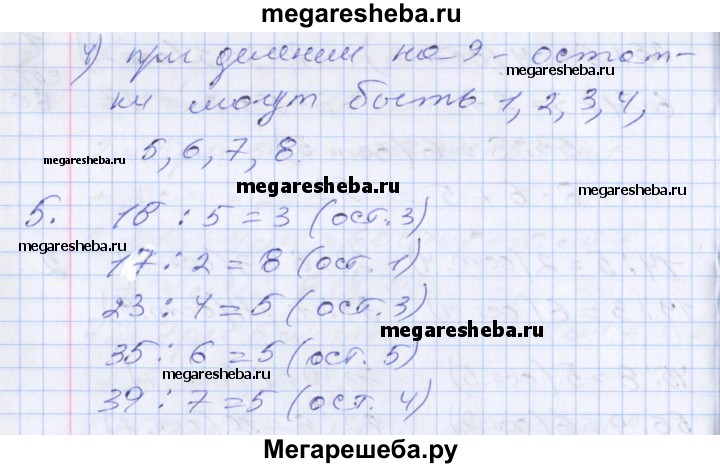 megaresheba.ru
4) при делении на 9 - остат-
megaresheba.ru
ки могут быть 1, 2, 3, 4,
5, 6, 7, 8.
megaresheba.ru
megaresheba.ru
5. 18 : 5 = 3 (ост. 3)
megaresheba.ru
17 : 2 = 8 (ост. 1)
23 : 4 = 5 (ост. 3)
megaresheba.ru
35 : 6 = 5 (ост. 5)
megaresheba.ru
39 : 7 = 5 (ост. 4)
Мегарешеба.ру